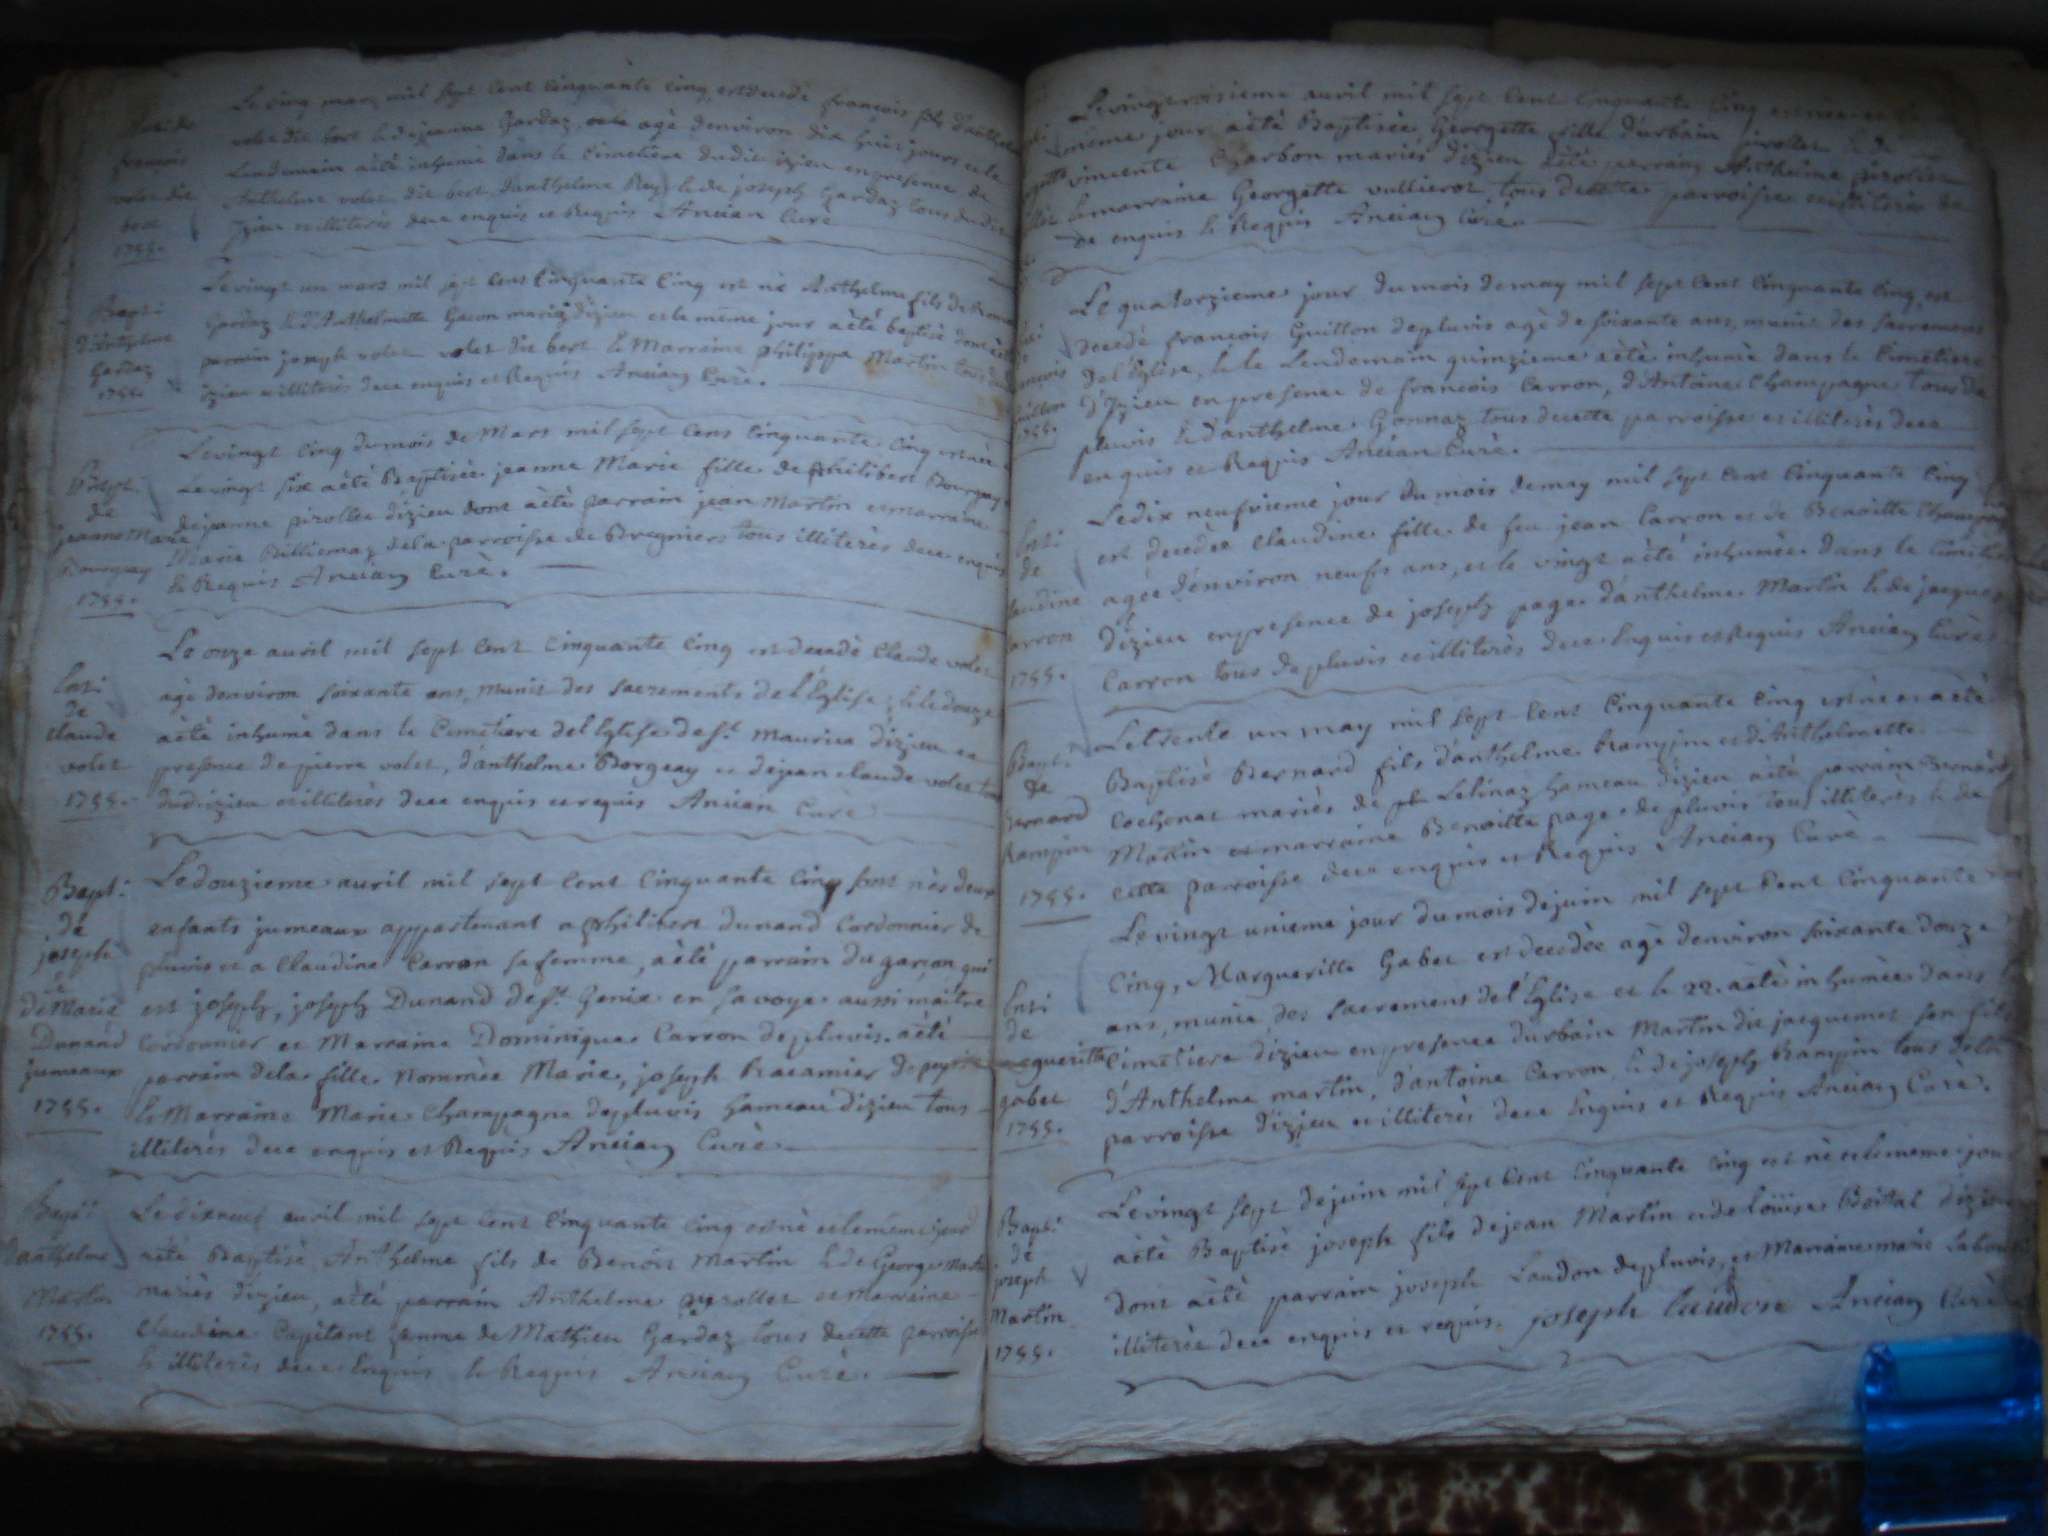 Le cinq mars mil sept cent cinquante cinq, est decedé françois fils d'anthelme
volet dit bert & de jeanne Gardaz, agé d'environ dix huit jours et le
Lendemain aèté inhumé dans le Cimetiere dudit izieu en presence de
Anthelme volet dit bert, d'anthelme Rey & de joseph Gardaz tous dudit
izieu et illiterès de ce enquis et Requis Ancian Curé
françois
volet dit
1755.
Le vingt un mars mil sept cent Cinquante Cinq est nè Anthelme fils de
Gardaz & d'Anthelmette Gacon mariéz d'izieu et le même jour aèté baptisé dont aèté
parrain joseph volet volet dit bert & Marraine philippa Martin tous du
izieu et illiterès de ce enquis et Requis Ancian Curé.
Bapt:
d'Anthelme
Gardaz
1755.
Le vingt Cinq du mois de Mars mil sept Cent Cinquante Cinq est née &
Le vingt six aèté Baptisée jeanne Marie fille de philibert Bourgey
& de jeanne pirollet d'izieu dont aèté parrain jean Martin et marraine
Marie Billiemaz de la parroisse de Bregniers tous illiterès de ce enquis
& Requis Ancian Curé.
Bapt:
de
jeanne Marie
Bourgey
1755.
Le onze avril mil sept Cent Cinquante Cinq est decedè Claude volet
agè denviron soixante ans, munit des sacrements de l'Eglise & le douze
aèté inhumè dans le Cemetiere de l'Eglise de St Maurice d'izieu en
presence de pierre volet, d'anthelme Borgeay et de jean claude volet tous
dudit izieu et illiterès de ce enquis et requis Ancian Curè
Ent:
de
Claude
volet
1755.
Le douzieme avril mil sept Cent Cinquante Cinq sont nès deux
enfants jumeaux appartenant a philibert Dunand Cordonnier de
pluvis et a Claudine Carron sa femme, aèté parrain du garçon qui
est joseph, joseph Dunand de St Genix en savoye aussi maitre
Cordonnier et Marraine Dominique Carron de pluvis. aèté
parrain de la fille Nommèe Marie, joseph Racamier de peyrieu
& Marraine Marie Champagne de pluvis hameau d'izieu tous
illiterès de ce enquis et Requis Ancian Curè.
Bapt:
de
joseph
&
de Marie
Dunand
jumeaux
1755.
Le dixneuf avril mil sept Cent Cinquante Cinq est nè et le même jour
aèté Baptisè Anthelme fils de Benoit Martin & de George Martin
mariès d'izieu, aèté parrain Anthelme pirollet et Marraine
Claudine Capitant femme de Mathieu Gardaz tous de cette parroisse
& illiterès de ce Enquis & Requis Ancian Curè.
Bapt:
d'anthelme
Martin
1755.
Le vingtroisieme avril mil sept Cent Cinquante Cinq est née et le
même jour aèté Baptisèe Georgette fille d'urbain pirollet & de
vincente Charbon mariés d'izieu aèté parrain Anthelme pirollet
& marraine Georgette vullierot tous de cette parroisse et illiterès de
ce enquis & Requis Ancian Curé.
Le quatorzieme jour du mois de may mil sept Cent Cinquante Cinq, est
decedé françois Guillon de pluvis agé de soixante ans, munit des sacremens
de l'Eglise, & le Lendemain quinzieme aèté inhumè dans le Cimetiere
d'Izieu en presence de françois Carron, d'Antoine Champagne tous de
pluvis & d'anthelme Gonnaz tous de cette parroisse et illiterès de ce
enquis et Requis Ancian Curè.
françois
Guillon
1755.
Le dix neufvieme jour du mois de may mil sept Cent Cinquante Cinq
est decedée Claudine fille de feu jean Carron et de Benoitte Champagne
agée d'environ neufs ans, et le vingt aèté inhumèe dans le Cimetiere
d'izieu en presence de joseph page d'anthelme Martin & de jacques
Carron tous de pluvis et illiterès de ce Enquis et Requis Ancian Curè
Ent:
de
Claudine
Carron
1755.
Le trente un may mil sept Cent Cinquante Cinq est nè et aèté
Baptisé Bernard fils d'anthelme Rampin et d'Anthelmette
Cochonat mariès de Lelinaz hameau d'izieu aèté parrain Bernard
Martin et marraine Benoitte page de pluvis tous illiterès & de
cette parroisse de ce enquis et Requis Ancian Curè.
Bapt:
de
Bernard
Rampin
1755.
Le vingt unieme jour du mois de juin mil sept Cent Cinquante
Cinq, Margueritte Gabet est decedèe agè denviron soixante douze
ans, munie des sacremens de l'Eglise et le 22. aèté inhumèe dans le
Cimetiere d'izieu en presence d'urbain Martin dit jacquemet son fils
d'Anthelme martin, d'antoine Carron & de joseph Rampin tous de la
parroisse d'izieu et illiterès de ce Enquis et Requis Ancian Curè.
Ent:
de
Margueritte
gabet
1755.
Le vingt sept de juin mil sept Cent Cinquante Cinq est nè et le meme jour
aèté Baptisè joseph fils de jean Martin et de Loüise Boital d'izieu
dont aèté parrain joseph Laudon de pluvis, et Marraine marie
illiterée de ce enquis et requis. joseph laudon Ancian Curè
Bapt:
de
joseph
Martin
1755.